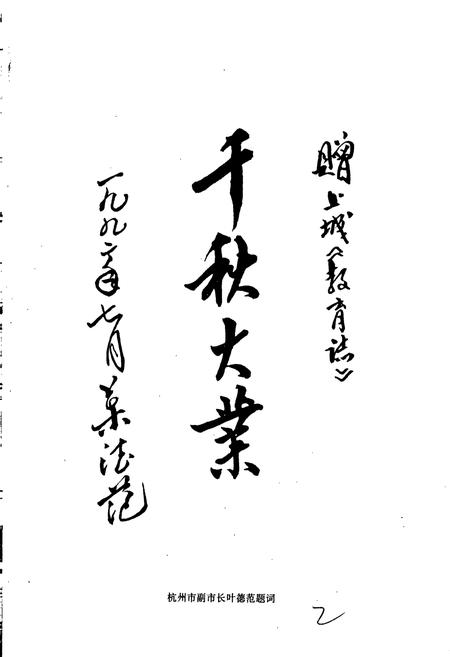 贈上城《教育志》
千秋大業
一九九六年七月葉德范
杭州市副市长叶德范题词
2